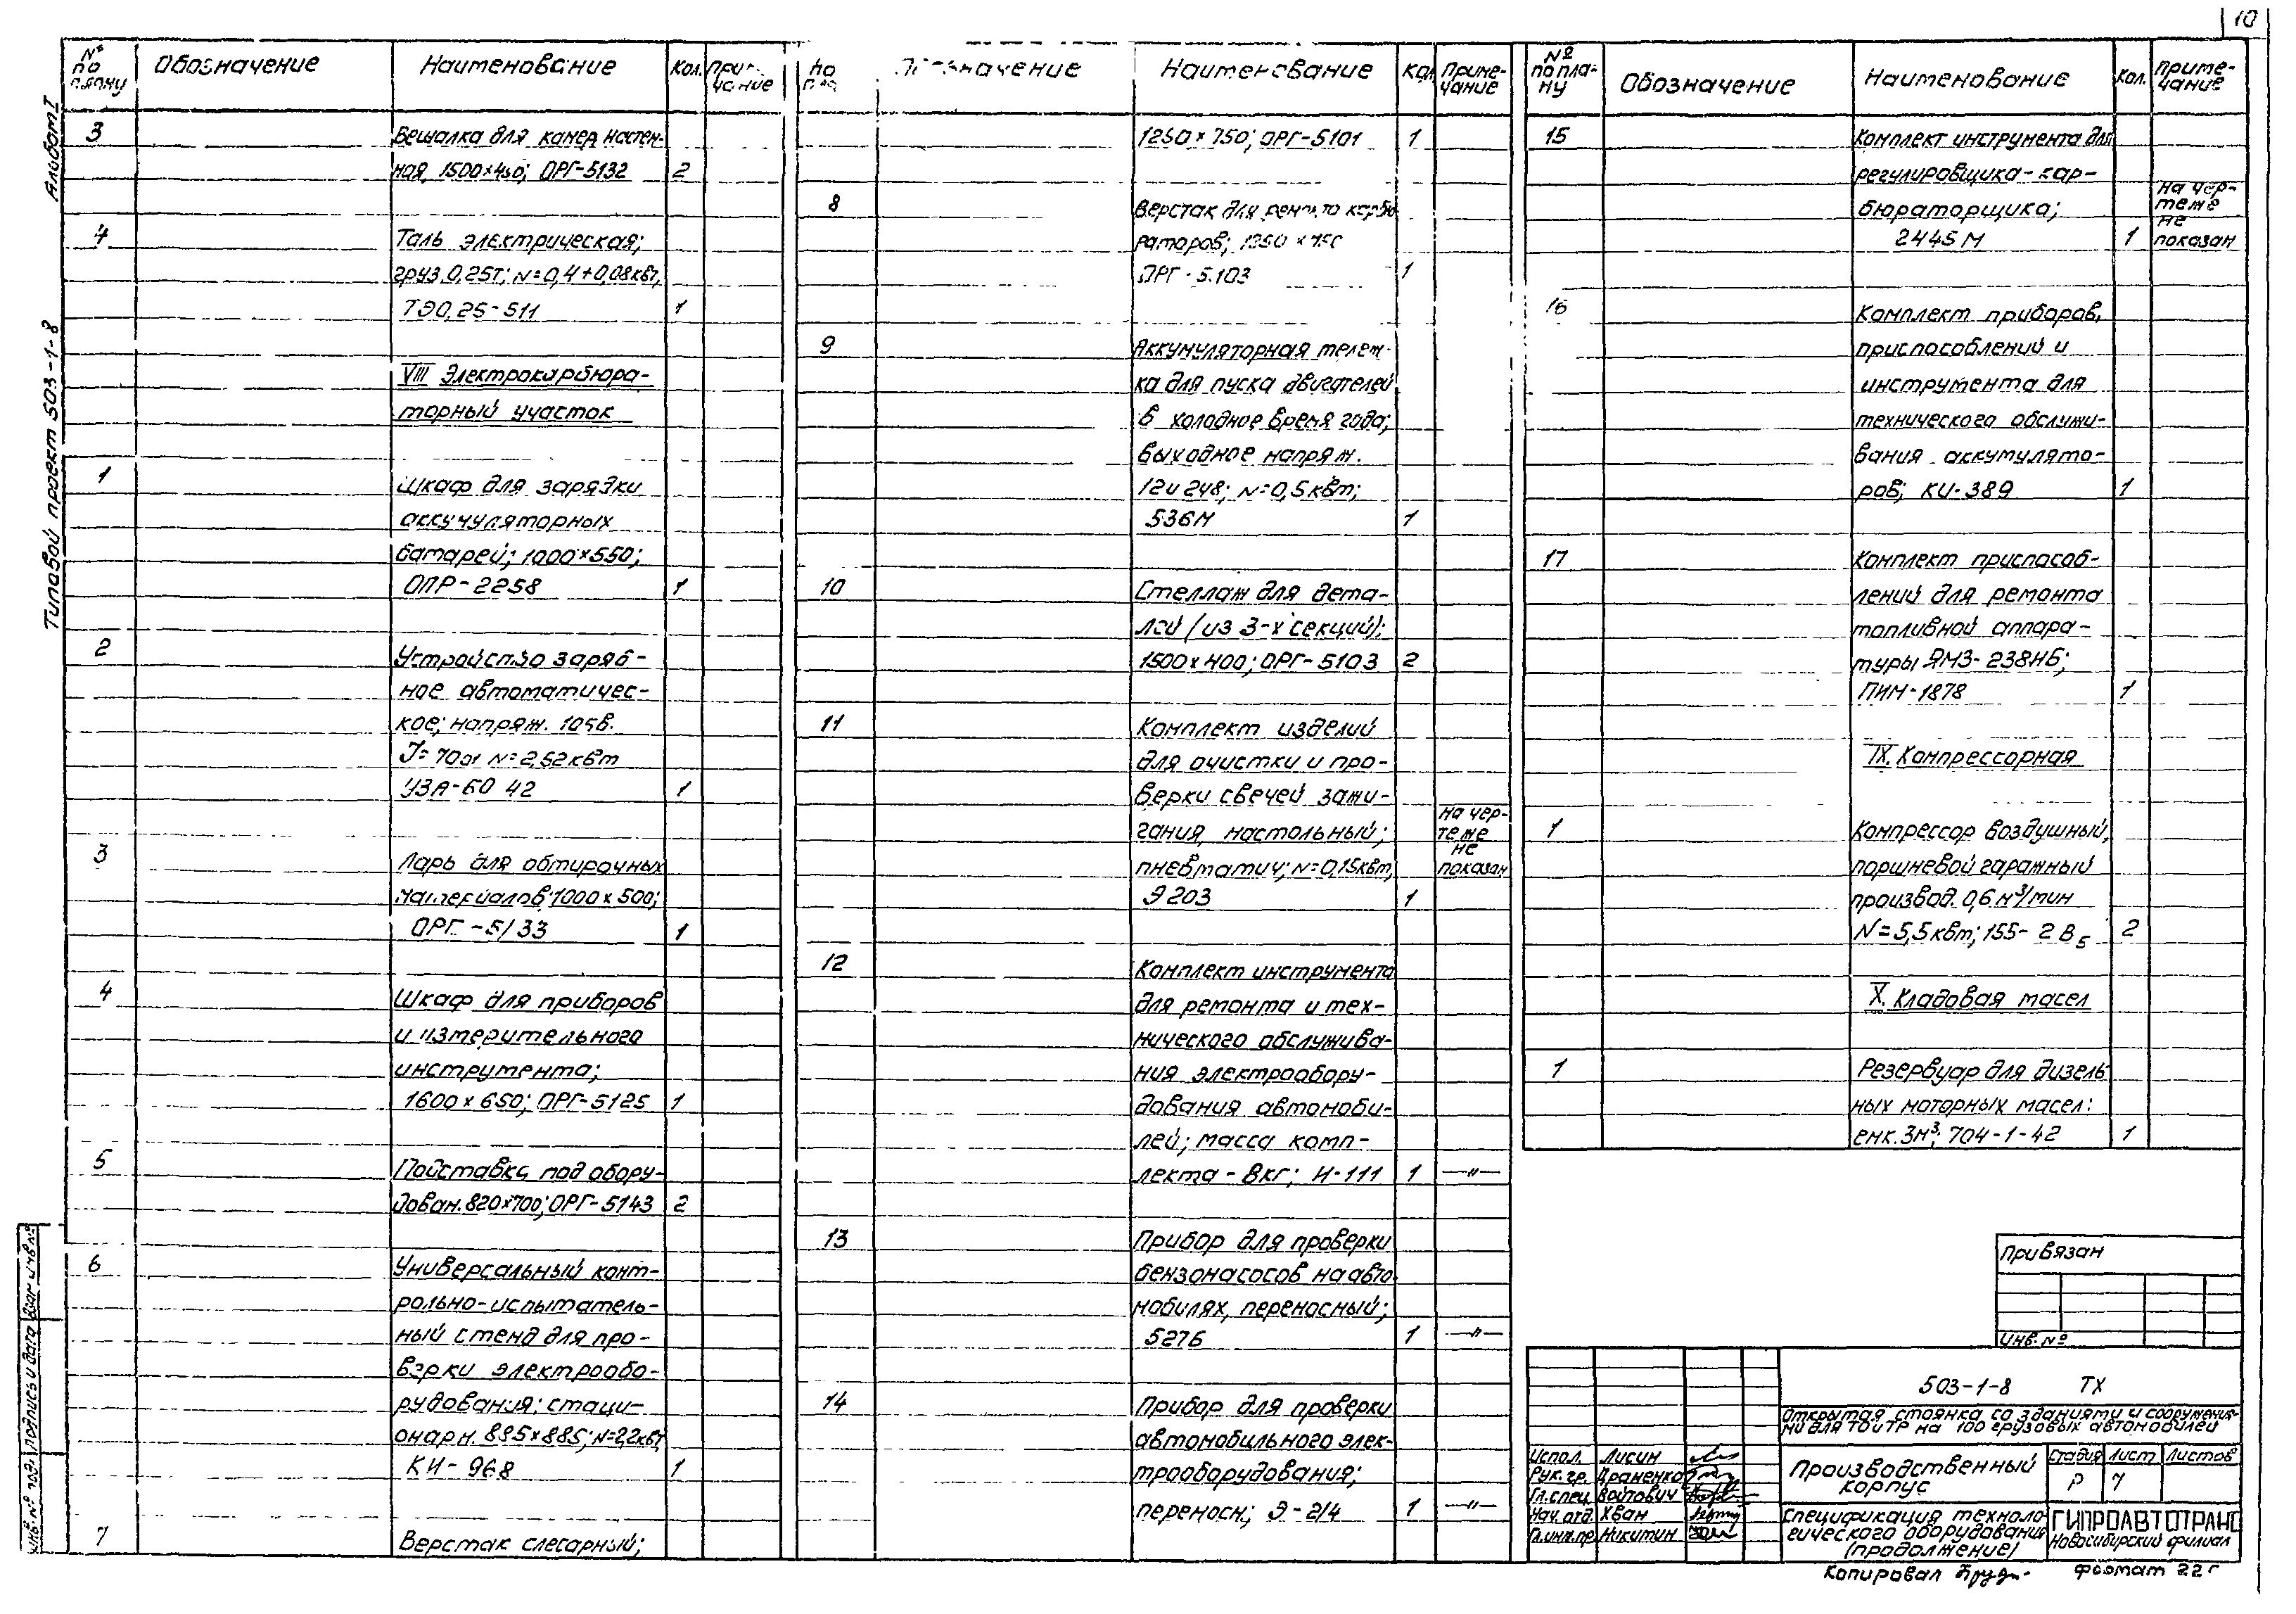 10
Альбом I
Типовой проект 503-1-8
№ по плану Обозначение Наименование Кол. Примечание
3 Вешалка для камер настен-
ная, 1500×430; ОРГ-5132 2
4 Таль электрическая;
груз. 0,25т; N=0,4+0,08квт,
ТЭ0,25-511 1
VIII Электрокарбюра-
торный участок
1 Шкаф для зарядки
аккумуляторных
батарей; 1000×550;
ОПР-2258 1
2 Устройство заряд-
ное автоматичес-
кое; напряж. 105в.
J=70а N=2,52квт
УЗА-60 42 1
3 Ларь для обтирочных
материалов 1000×500;
ОРГ-5133 1
4 Шкаф для приборов
и измерительного
инструмента;
1600×650; ОРГ-5125 1
5 Подставка под обору-
дован. 820×700; ОРГ-5143 2
6 Универсальный конт-
рольно-испытатель-
ный стенд для про-
верки электрообо-
рудования; стаци-
онарн. 885×885; N=2,2квт
КИ-968 1
7 Верстак слесарный;
Наименование Кол Приме-
чание
1250×750; ОРГ-5101 1
8 Верстак для ремонта карбю
раторов; 1250×750
ОРГ-5.103 1
9 Аккумуляторная тележ-
ка для пуска двигателей
в холодное время года;
выходное напряж.
12и24в; N=0,5квт;
536М 1
10 Стеллаж для дета-
лей (из 3-х секций);
1500×400; ОРГ-5103 2
11 Комплект изделий
для очистки и про-
верки свечей зажи-
гания, настольный;
пневматич; N=0,15квт,
Э203 1 на чер-
теже
не
показан
12 Комплект инструмента
для ремонта и тех-
нического обслужива-
ния электрообору-
дования автомоби-
лей; масса комп-
лекта - 8кг; И-111 1 —"—
13 Прибор для проверки
бензонасосов на авто
мобилях, переносный;
527Б 1 —"—
14 Прибор для проверки
автомобильного элек-
трооборудования;
переносн; Э-214 1 —"—
№ по пла-
ну Обозначение Наименование Кол. Приме-
чание
15 Комплект инструмента для
регулировщика-кар-
бюраторщика;
2445М 1 на чер-
теже
не
показан
16 Комплект приборов,
приспособлений и
инструмента для
технического обслужи-
вания аккумулято-
ров; КИ-389 1
17 Комплект приспособ-
лений для ремонта
топливной аппара-
туры ЯМЗ-238НБ;
ПИМ-1878 1
IX. Компрессорная
1 Компрессор воздушный,
поршневой гаражный
производ. 0,6м³/мин
N=5,5квт; 155-2В5 2
X. Кладовая масел
1 Резервуар для дизель
ных моторных масел:
емк. 3м³; 704-1-42 1
Привязан
Инв. №
503-1-8 ТХ
Открытая стоянка со зданиями и сооружения-
ми для ТО и ТР на 100 грузовых автомобилей
Испол. Лисин
Рук. гр. Драненко
Гл. спец Войтович
Нач. отд. Хван
Гл. инж. пр Никитин
Производственный
корпус
Стадия Лист Листов
Р 7
Спецификация техноло
гического оборудования
(продолжение)
ГИПРОАВТОТРАНС
Новосибирский филиал
Копировал
Формат 22г
Инв. № под. Подпись и дата Взам. инв. №